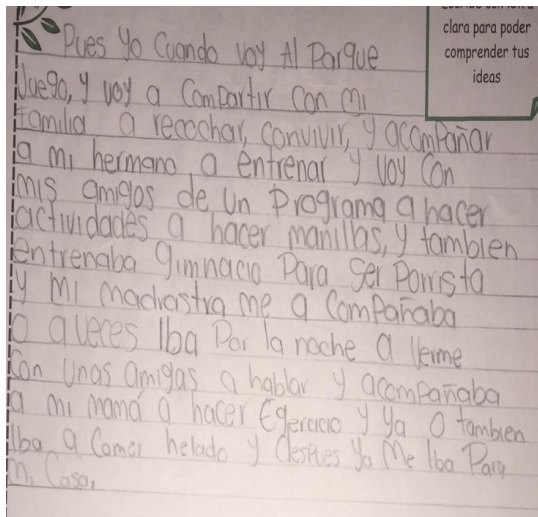 clara para poder
comprender tus
ideas
Pues Yo Cuando voy Al Parque
Juego, y voy a Compartir Con mi
familia a recochar, convivir, y acompañar
a mi hermano a entrenar y voy Con
mis amigos de un Programa a hacer
actividades a hacer manillas, y tambien
entrenaba gimnacio Para ser Porrista
y mi madrastra me a Compañaba
o aveces Iba Por la noche a verme
Con unas amigas a hablar y acompañaba
a mi mamá a hacer Egercicio y ya o tambien
Iba a Comer helado y despues ya Me Iba Para
mi Casa.